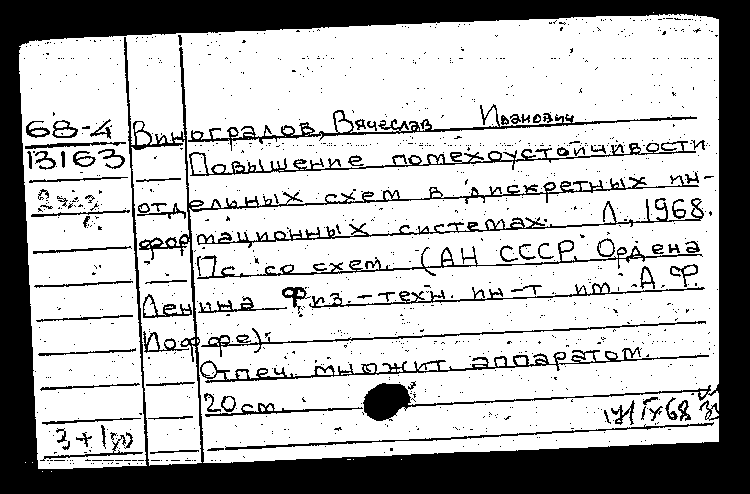 68-4
13163
2 экз
Виноградов, Вячеслав Иванович
Повышение помехоустойчивости
отдельных схем в дискретных ин-
формационных системах. Л., 1968.
17 с. со схем. (АН СССР. Ордена
Ленина Физ.-техн. ин-т. им. А.Ф.
Иоффе).
Отпеч. множит. аппаратом.
20 см.
3+1
17/IX 68